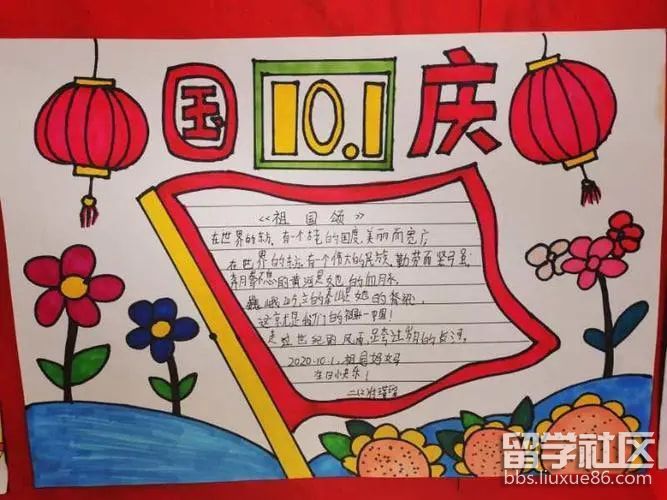 国 10.1 庆
《祖国颂》
在世界的东方,有一个古老的国度,美丽而宽广
在世界的东方,有一个伟大的民族,勤劳而坚强
奔息的黄河是她的血脉
巍峨屹立的泰山是她的脊梁
这就是我们的祖国一中国!
走世纪的风雨,跨过岁月的长河。
2020.10.1,祖国妈妈
生日快乐!
留学社区
bbs.liuxue86.com